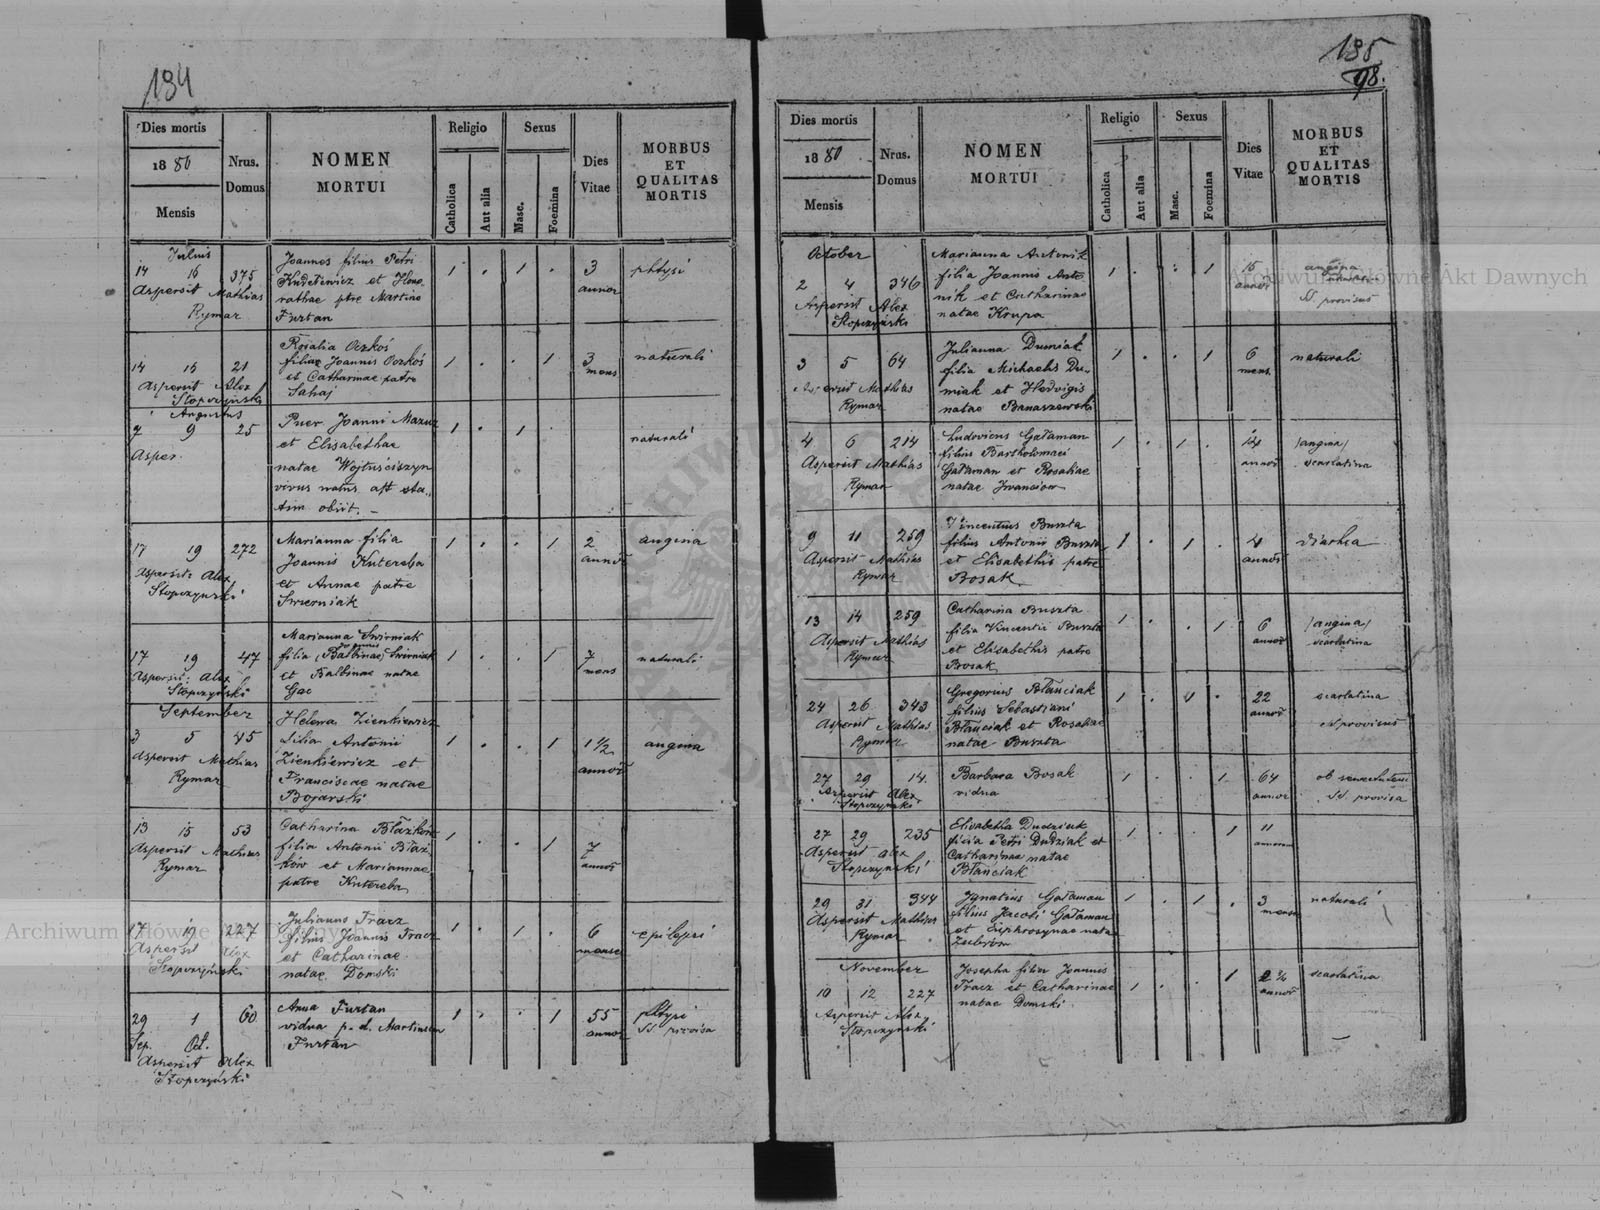 184
Dies mortis
1880
Mensis
Nrus. Domus
NOMEN
MORTUI
Religio
Catholica
Aut alia
Sexus
Masc.
Foemina
Dies
Vitae
MORBUS
ET
QUALITAS
MORTIS
Julius
14 16 375 Joannes filius Petri 1 . 1 . 3 phtysi
Aspersit Mathias et Hono annor
Rymar rathae ptre Martino
Furtan
Rosalia Oczkoś
14 16 21 filia Joannis Oczkoś 1 . . 1 3 naturali
Aspersit Alex et Catharinae patre mens
Stopczyński Sahaj
Augustus
7 9 25 Puer Joanni Mazur 1 . 1 . naturali
Asper. et Elisabethae
natae Wojtuściszyn
vivus natus ast sta„
tim obiit. —
17 19 272 Marianna filia 1 . . 1 2 angina
Aspersit: Alex Joannis Kutereba annor
Stopczyński et Annae patre
Swierniak
Marianna Swirniak
17 19 47 filia (Balbinae) Swirniak 1 . . 1 7 naturali
Aspersit: Alex et Balbinae natae mens
Stopczyński Gac
September Helena Zienkiewicz
3 5 45 filia Antonii 1 . . 1 1½ angina
Aspersit Mathias Zienkiewicz et annor
Rymar Franciscae natae
Bojarski
13 15 53 Catharina Błazków 1 . . 1 7
Aspersit Mathias filia Antonii Błaz annor
Rymar ków et Mariannae
patre Kutereba
17 19 227 Julianus Tracz 1 . 1 . 6 epilepsi
Aspersit Alex filius Joannis Tracz menses
Stopczyński et Catharinae
natae Domski
29 1 60 Anna Furtan 1 . . 1 55 phtysi
Sep. Oct. vidua p. d. Martinum annor SS provisa
Aspersit Alex Furtan
Stopczyński
185
98.
Dies mortis
1880
Mensis
Nrus.
Domus
NOMEN
MORTUI
Religio
Catholica
Aut alia
Sexus
Masc.
Foemina
Dies
Vitae
MORBUS
ET
QUALITAS
MORTIS
October Marianna Antonik
2 4 346 filia Joannis Anto 1 . . 1 15 angina
Aspersit Alex nik et Catharinae annor
Stopczyński natae Krupa SS provisus
3 5 64 Julianna Dumiak 1 . . 1 6 naturali
Aspersit Mathias filia Michaelis Du mens
Rymar miak et Hedvigis
natae Banaszewski
4 6 214 Ludovicus Gataman 1 . 1 . 14 /angina/
Aspersit Mathias filius Bartholomaei annor scarlatina
Rymar Gataman et Rosaliae
natae Iwanciow
9 11 259 Vincentius Buszta 1 . 1 . 4 diarhea
Aspersit Mathias filius Antonii Buszta annor
Rymar et Elisabethis patre
Bosak
13 14 259 Catharina Buszta 1 . . 1 6 /angina/
Aspersit Mathias filia Vincentii Buszta annor scarlatina
Rymar et Elisabethis patre
Bosak
24 26 343 Gregorius Błanciak 1 . 1 . 22 scarlatina
Aspersit Mathias filius Sebastiani annor SS provisus
Rymar Błanciak et Rosaliae
natae Buszta
27 29 14. Barbara Bosak 1 . . 1 64
Aspersit Alex vidua annor SS provisa
Stopczyński
27 29 235 Elisabetha Dudziak 1 . . 1 11
Aspersit Alex filia Petri Dudziak et annorum
Stopczyński Catharinae natae
Błanciak
29 31 344 Ignatius Gataman 1 . 1 . 3 naturali
Aspersit Mathias filius Jacobi Gataman mens
Rymar et Euphrosynae nata
Zubrów
November Josepha filia Joannes
10 12 227 Tracz et Catharinae 1 . . 1 2½ scarlatina
Aspersit Alex natae Domski annor
Stopczyński
Archiwum Główne Akt Dawnych
Archiwum Główne Akt Dawnych